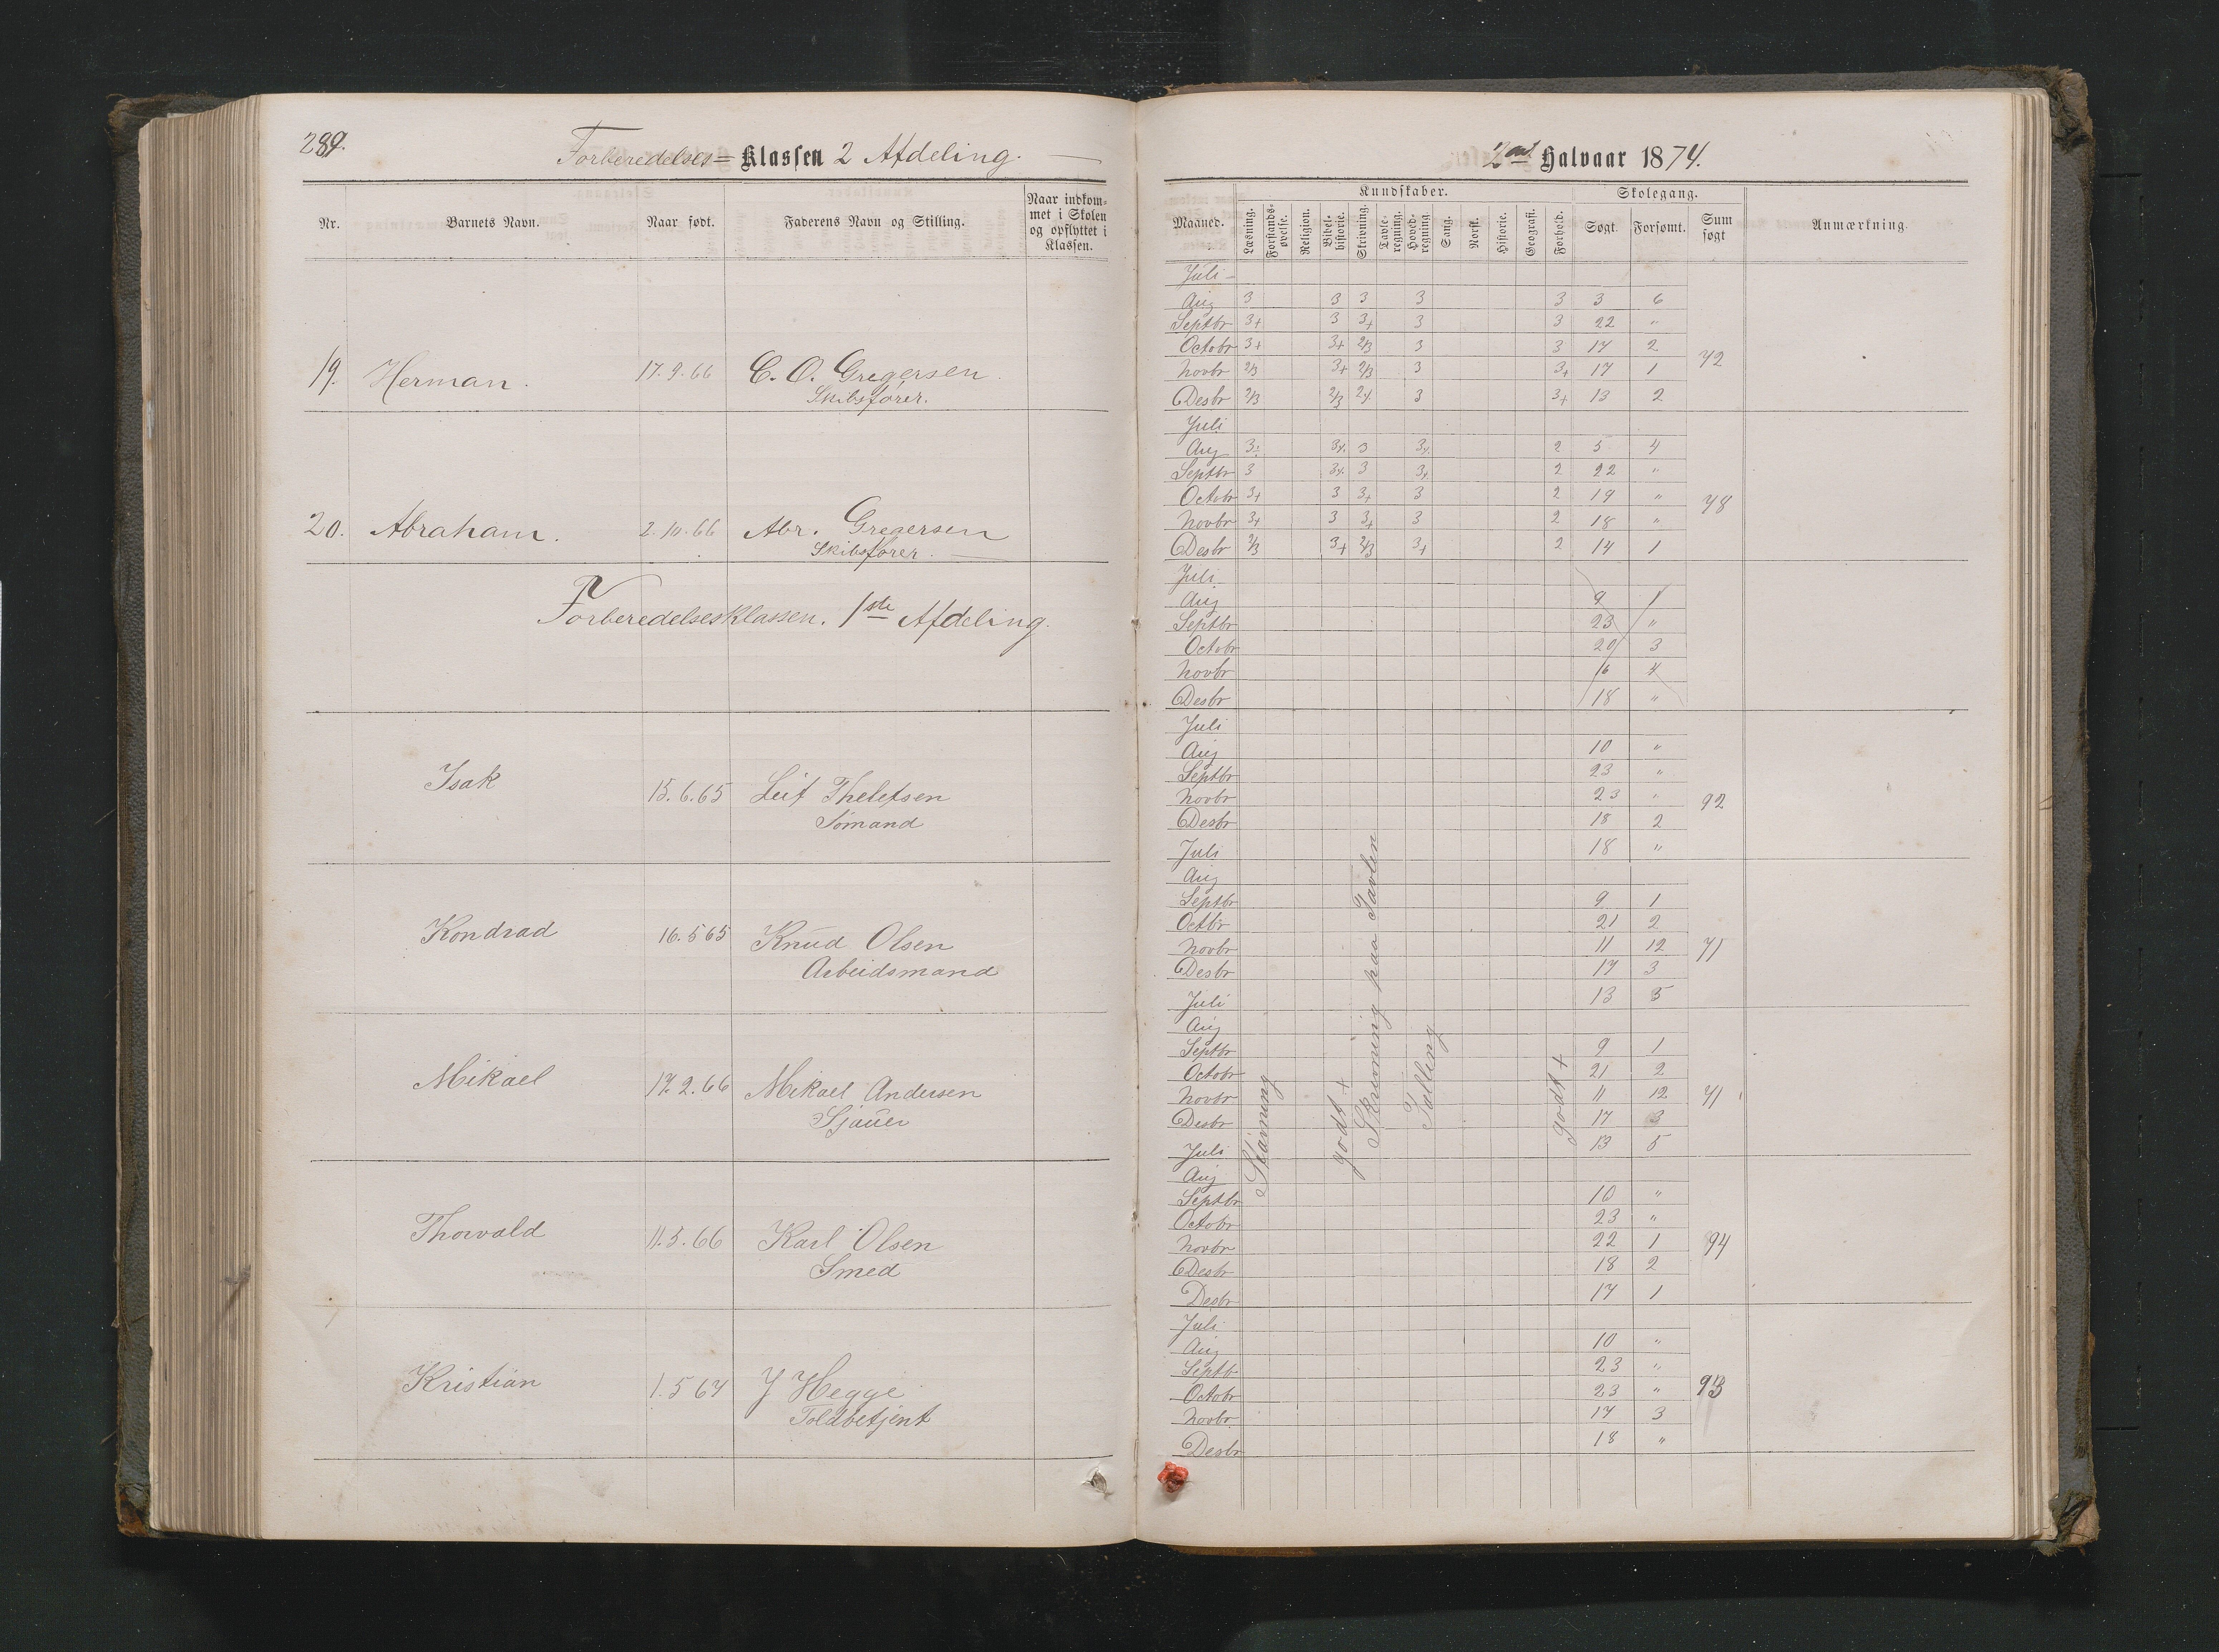 289.
Forberedelses= Klassen 2 Afdeling.
Nr. Barnets Navn. Naar født. Faderens Navn og Stilling. Naar indkom-
met i Skolen
og opflyttet i
Klassen.
19. Herman. 17.9.66 C. O. Gregersen
Skibsfører.
20. Abraham. 2.10.66 Abr. Gregersen
Skibsfører.
Forberedelsesklassen. 1ste Afdeling.
Isak 15.6.65 Leif Thelefsen
Sømand
Kondrad 16.5 65 Knud Olsen
Arbeidsmand
Mikael 17.2.66 Mikael Andersen
Sjauer
Thorvald 11.5.66 Karl Olsen
Smed
Kristian 1.5 67 J Hegge
Toldbetjent
2det Halvaar 1874.
Maaned. Kundskaber. Skolegang. Anmærkning.
Læsning. Forstands-øvelse. Religion. Bibel-historie. Skrivning. Tavle-regning. Hoved-regning. Sang. Norsk. Historie. Geografi. Forhold. Søgt. Forsømt. Sum søgt
Juli
Aug 3 3 3 3 3 3 6
Septbr 3+ 3 3+ 3 3 22 "
Octobr 3+ 3+ 2/3 3 3 17 2
Novbr 2/3 3+ 2/3 3 3+ 17 1 72
Desbr 2/3 2/3 2+ 3 3+ 13 2
Juli
Aug 3 3+ 3 3+ 2 5 4
Septbr 3 3+ 3 3+ 2 22 "
Octobr 3+ 3 3+ 3 2 19 " 78
Novbr 3+ 3 3+ 3 2 18 "
Desbr 2/3 3+ 2/3 3+ 2 14 1
Juli
Aug 9 1
Septbr 23 "
Octobr 20 3
Novbr 16 4
Desbr 18 "
Juli
Aug 10 "
Septbr 23 "
Novbr 23 " 92
Desbr 18 2
Juli 18 "
Aug
Septbr 9 1
Octbr 21 2
Novbr 11 12 71
Desbr 17 3
Juli 13 5
Aug
Septbr 9 1
Octobr 21 2
Novbr 11 12 71
Desbr 17 3
Juli 13 5
Aug
Septbr 10 "
Octobr 23 "
Novbr 22 1 94
Desbr 18 2
Desbr 17 1
Juli
Aug 10 "
Septb 23 "
Octobr 23 " 93
Novbr 17 3
Desbr 18 "
Stavning
godt +
Skrivning paa Tavlen
Tælling
godt +